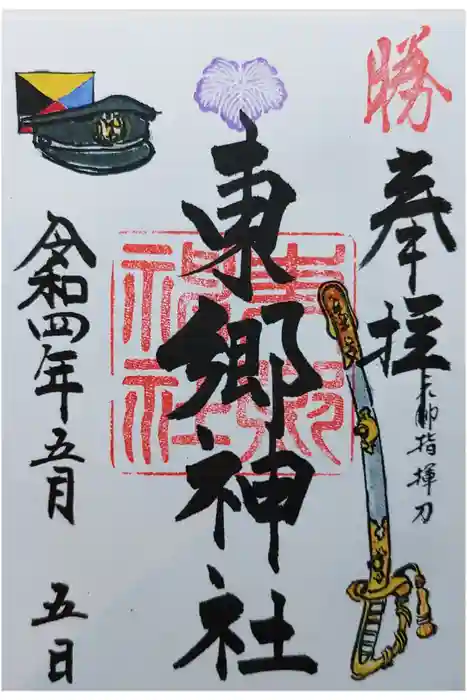 勝
奉拝
元帥指揮刀
東郷神社
東郷神社
令和四年五月 五日